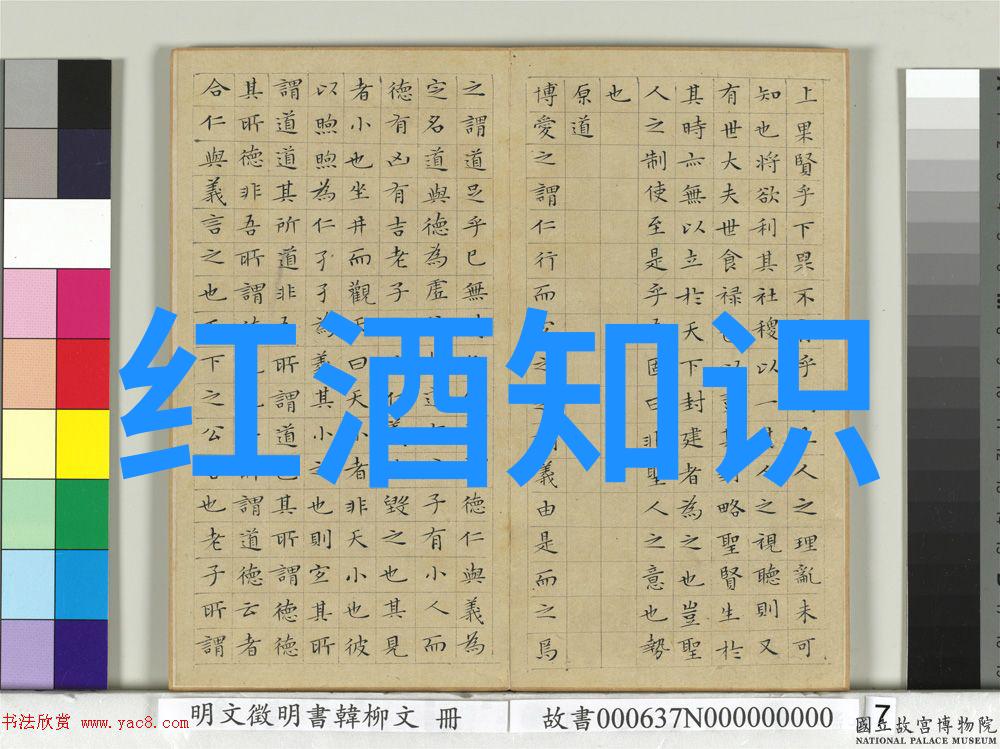 上果賢乎下果不乎人之理亂未可
知也將欲利其社稷以一其人之視聽則又
有世大夫世食祿以其略聖賢生於
其時亦無以立於天下封建者為之也豈聖
人之制使至是乎固曰非聖人之意也勢
也
原道
博愛之謂仁行而之義由是而之焉
之謂道足乎已無德仁與義為
定名道與德為虛子有小人而
德有凶有吉老子毀之也其見
者小也坐井而觀天曰天小者非天小也彼
以煦煦為仁孑孑為義其小之也則宜其所
謂道道其所道非吾所謂道也其所謂德德
其所德非吾所謂謂道德云者
合仁與義言之也下之公也老子所謂
红酒知识
明文徵明書韓柳文 冊
故書000637N000000000
7
國立故宮博物院
NATIONAL PALACE MUSEUM
书法欣赏 www.yac8.com